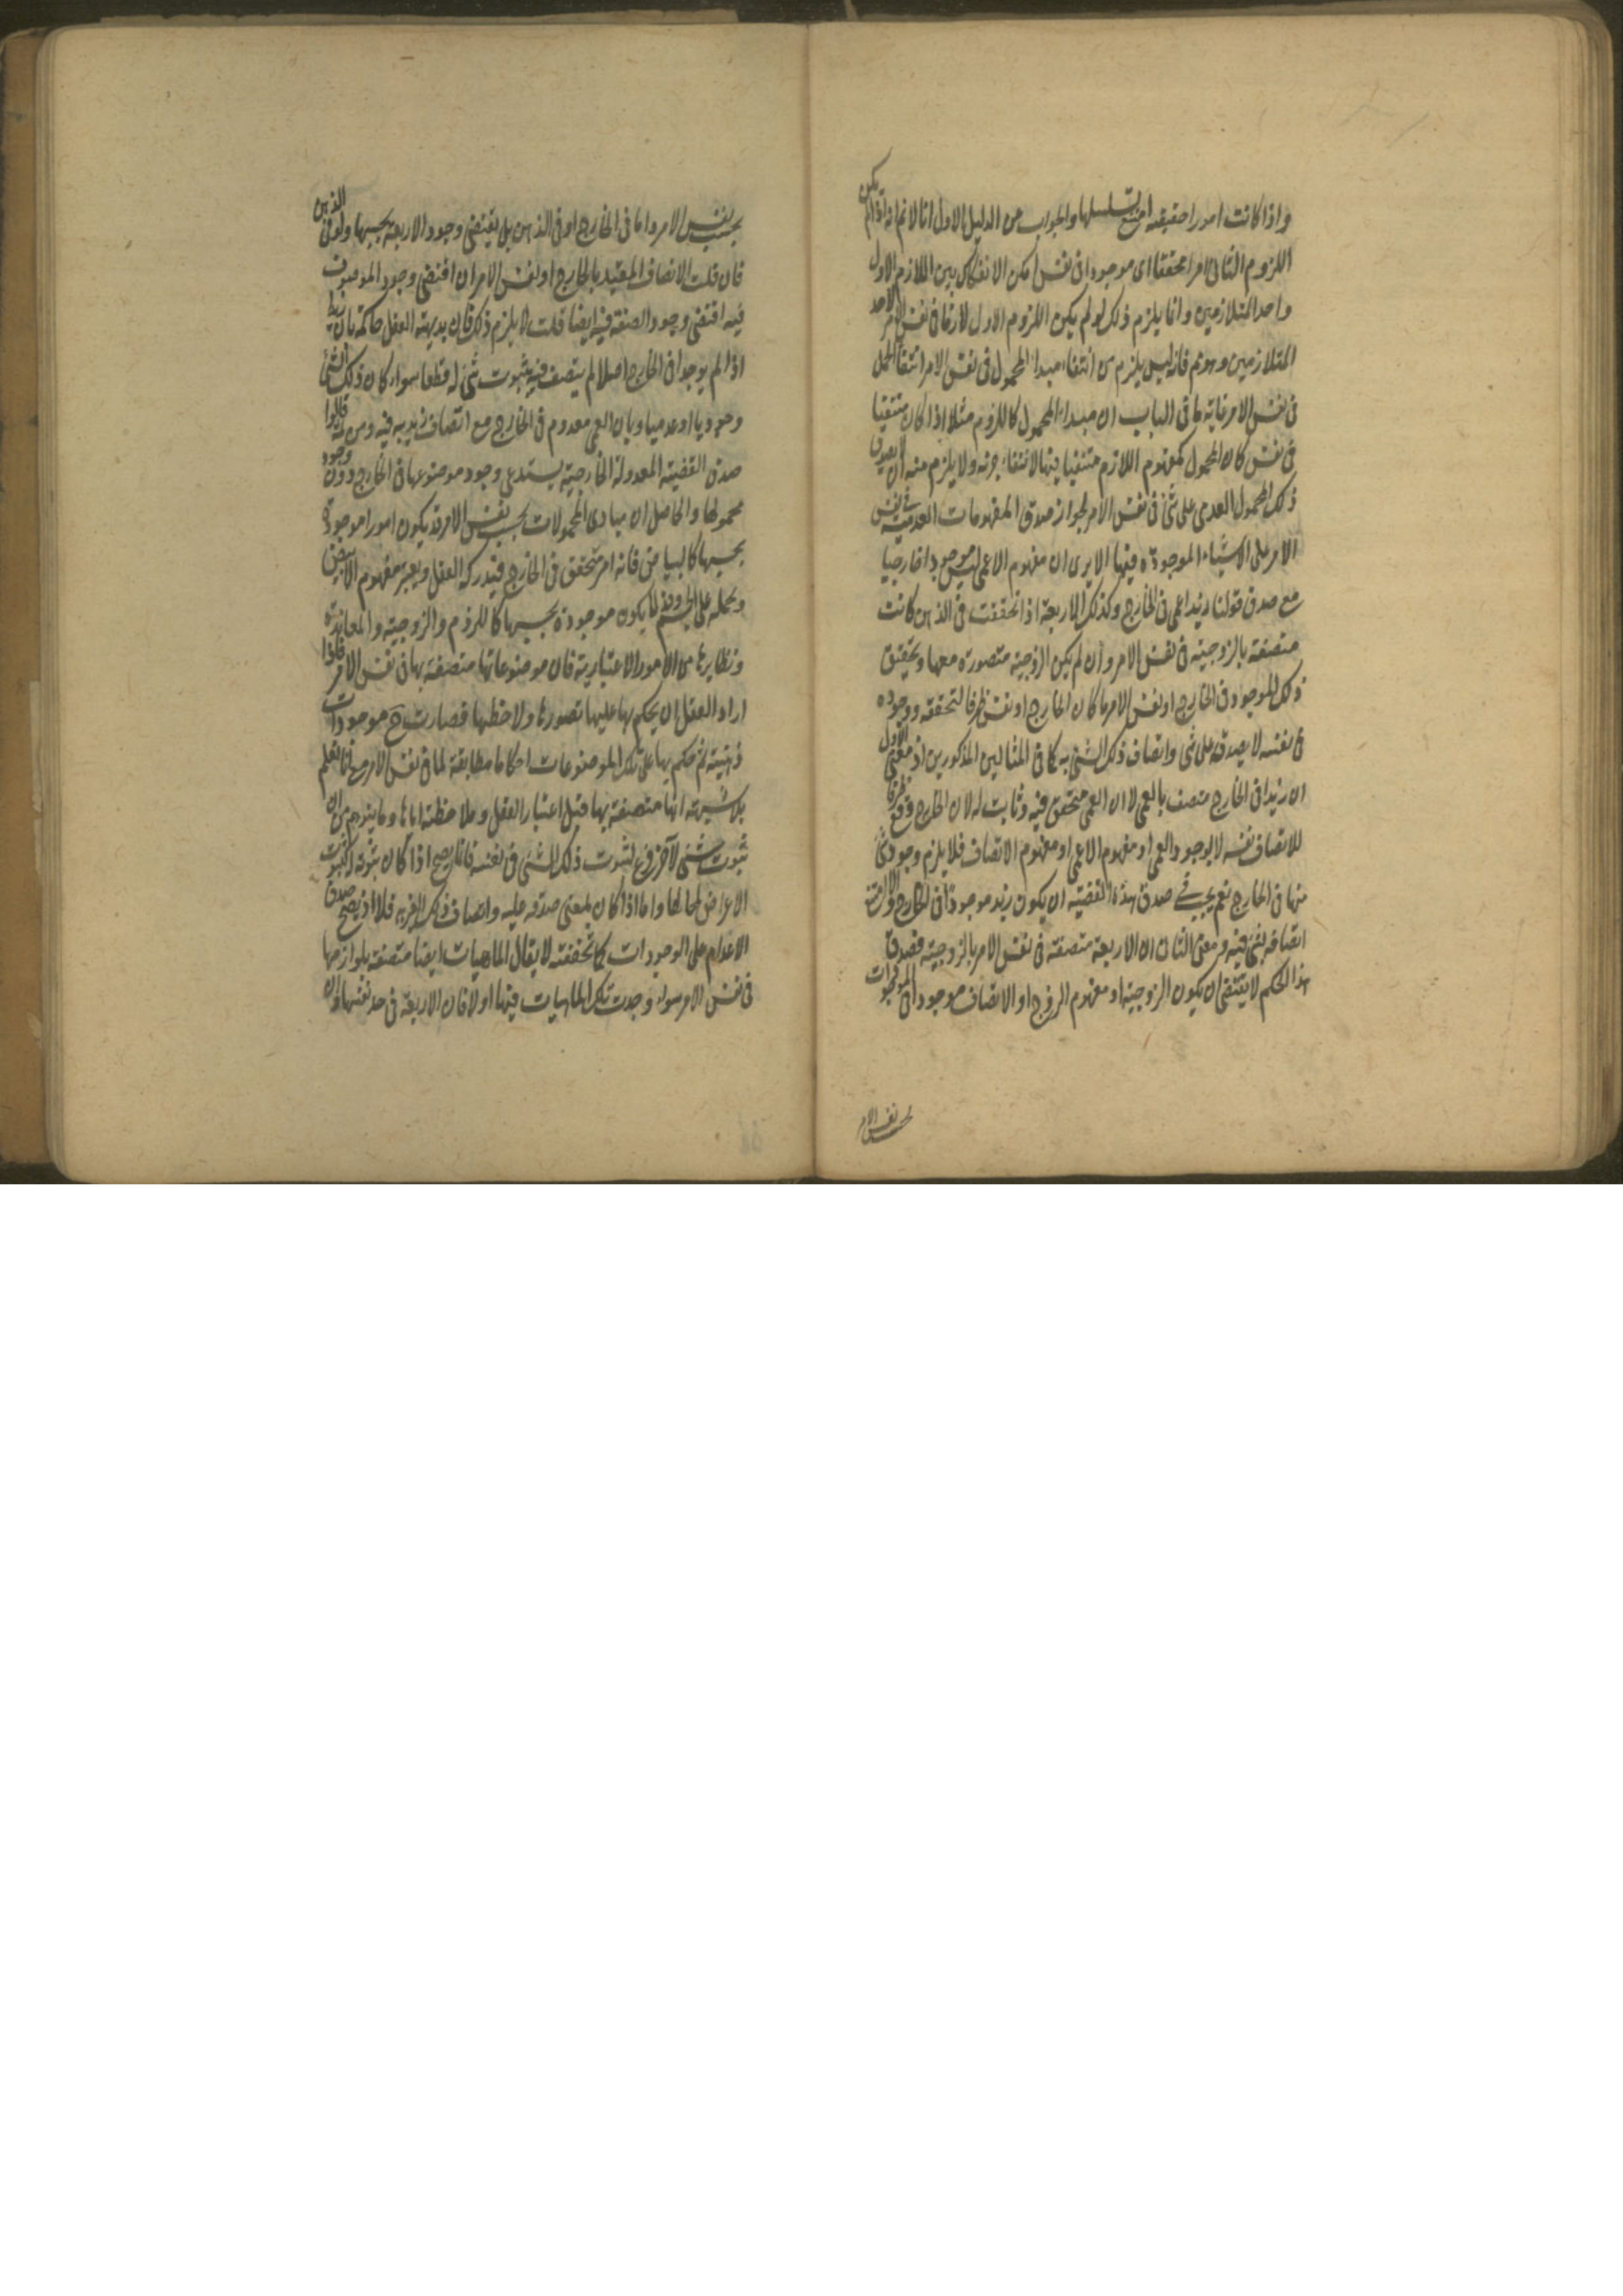 واذا كانت امورا حقيقية امتنع تسلسلها والجواب من الدليل الاول انا لانم انه اذا لم يكن
اللزوم الثانى امرا محققا اى موجودا فى نفس امكن الانفكاك بين اللازم الاول
واحد المتلازمين وانما يلزم ذلك لو لم يكن اللزوم الاول لازما فى نفس الامر لاحد
المتلازمين وهو مم فانه ليس يلزم من انتفاء مبدا المحمول فى نفس الامر انتفاء الحمل
فى نفس الامر غاية ما فى الباب ان مبدا المحمول كاللزوم مثلا اذا كان منتفيا
فى نفس كان المحمول كمفهوم اللازم منتفيا فيها لانتفاء جزئه ولا يلزم منه ان لا يصدق
ذلك المحمول العدمى على شئ فى نفس الامر لجواز صدق المفهومات العدمية فى نفس
الامر على الاشياء الموجودة فيها الا يرى ان مفهوم الاعمى ليس موجودا خارجيا
مع صدق قولنا زيد اعمى فى الخارج وكذلك الاربعة اذا تحققت فى الذهن كانت
متصفة بالزوجية فى نفس الامر وان لم يكن الزوجية متصورة معها وتحقيق
ذلك الموجود فى الخارج او نفس الامر ما كان الخارج او نفس ظرفا لتحققه ووجوده
فى نفسه لا يصدقه على شى واتصاف ذلك الشئ به كما فى المثالين المذكورين اذ معنى الاول
ان زيدا فى الخارج متصف بالعمى لا ان العمى متحقق فيه وثابت له لان الخارج وقع ظرفا
للاتصاف نفسه لا لوجود العمى او مفهوم الاعمى او مفهوم الاتصاف فلا يلزم وجود شئ
منها فى الخارج نعم يجب فى صدق هذه القضية ان يكون زيد موجودا فى الخارج والا امتنع
اتصافه بشئ فيه ومعنى الثانى ان الاربعة متصفة فى نفس الامر بالزوجية فصدق
هذا الحكم لا يقتضى ان يكون الزوجية او مفهوم الزوج او الاتصاف موجودا فى الموجودات
بحسب نفس الامر
بحسب نفس الامر واما فى الخارج او فى الذهن بل يقتضى وجود الاربعة بحسبها ولو فى الذهن
فان قلت الاتصاف المقيد بالخارج او نفس الامر ان اقتضى وجود الموصوف
فيه اقتضى وجود الصفة فيه ايضا قلت لا يلزم ذلك فان بديهة العقل حاكمة بان زيدا
اذا لم يوجد فى الخارج اصلا لم يتصف فيه بثبوت شئ له قطعا سواء كان ذلك الشئ
وجوديا او عدميا وبان العمى معدوم فى الخارج مع اتصاف زيد به فيه ومن ثمه قالوا
صدق القضية المعدولة الخارجية يستدعى وجود موضوعها فى الخارج دون وجود
محمولها والحاصل ان مبادى المحمولات بحسب نفس الامر قد يكون امورا موجودة
بحسبها كالبياض فانه امر متحقق فى الخارج فيدركه العقل ويعتبر مفهوم الابيض
ويحمله على الجسم وقد لا يكون موجودة بحسبها كاللزوم والزوجية والمعاندة
ونظايرها من الامور الاعتبارية فان موضوعاتها متصفة بها فى نفس الامر فاذا
اراد العقل ان يحكم بها عليها تصورها ولاحظها فصارت ح موجودات
ذهنية ثم حكم بها على تلك الموضوعات احكاما مطابقة لما فى نفس الامر مع انا نعلم
بلا شبهة انها متصفة بها قبل اعتبار العقل وملاحظته اياها وما يتوهم من ان
ثبوت شئ لآخر فرع لثبوت ذلك الشئ فى نفسه فانما يصح اذا كان ثبوته كثبوت
الاعراض لمحالها واما اذا كان بمعنى صدقه عليه واتصاف ذلك الاخر به فلا اذ يصح صدق
الاعدام على الوجودات كما تحققته لا يقال الماهيات ايضا متصفة بلوازمها
فى نفس الامر سواء وجدت تلك الماهيات فيها او لا فان الاربعة فى حد نفسها وان